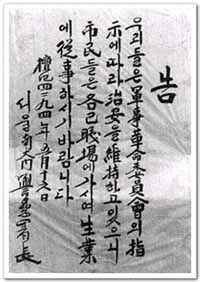 告
우리들은 軍事革命委員會의 指
示에 따라 治安을 維持하고 있으니
市民들은 各己 職場에 가시여 生業
에 從事하시기 바랍니다
檀紀四二九四年 五月 十六日
서울市內 警察署長